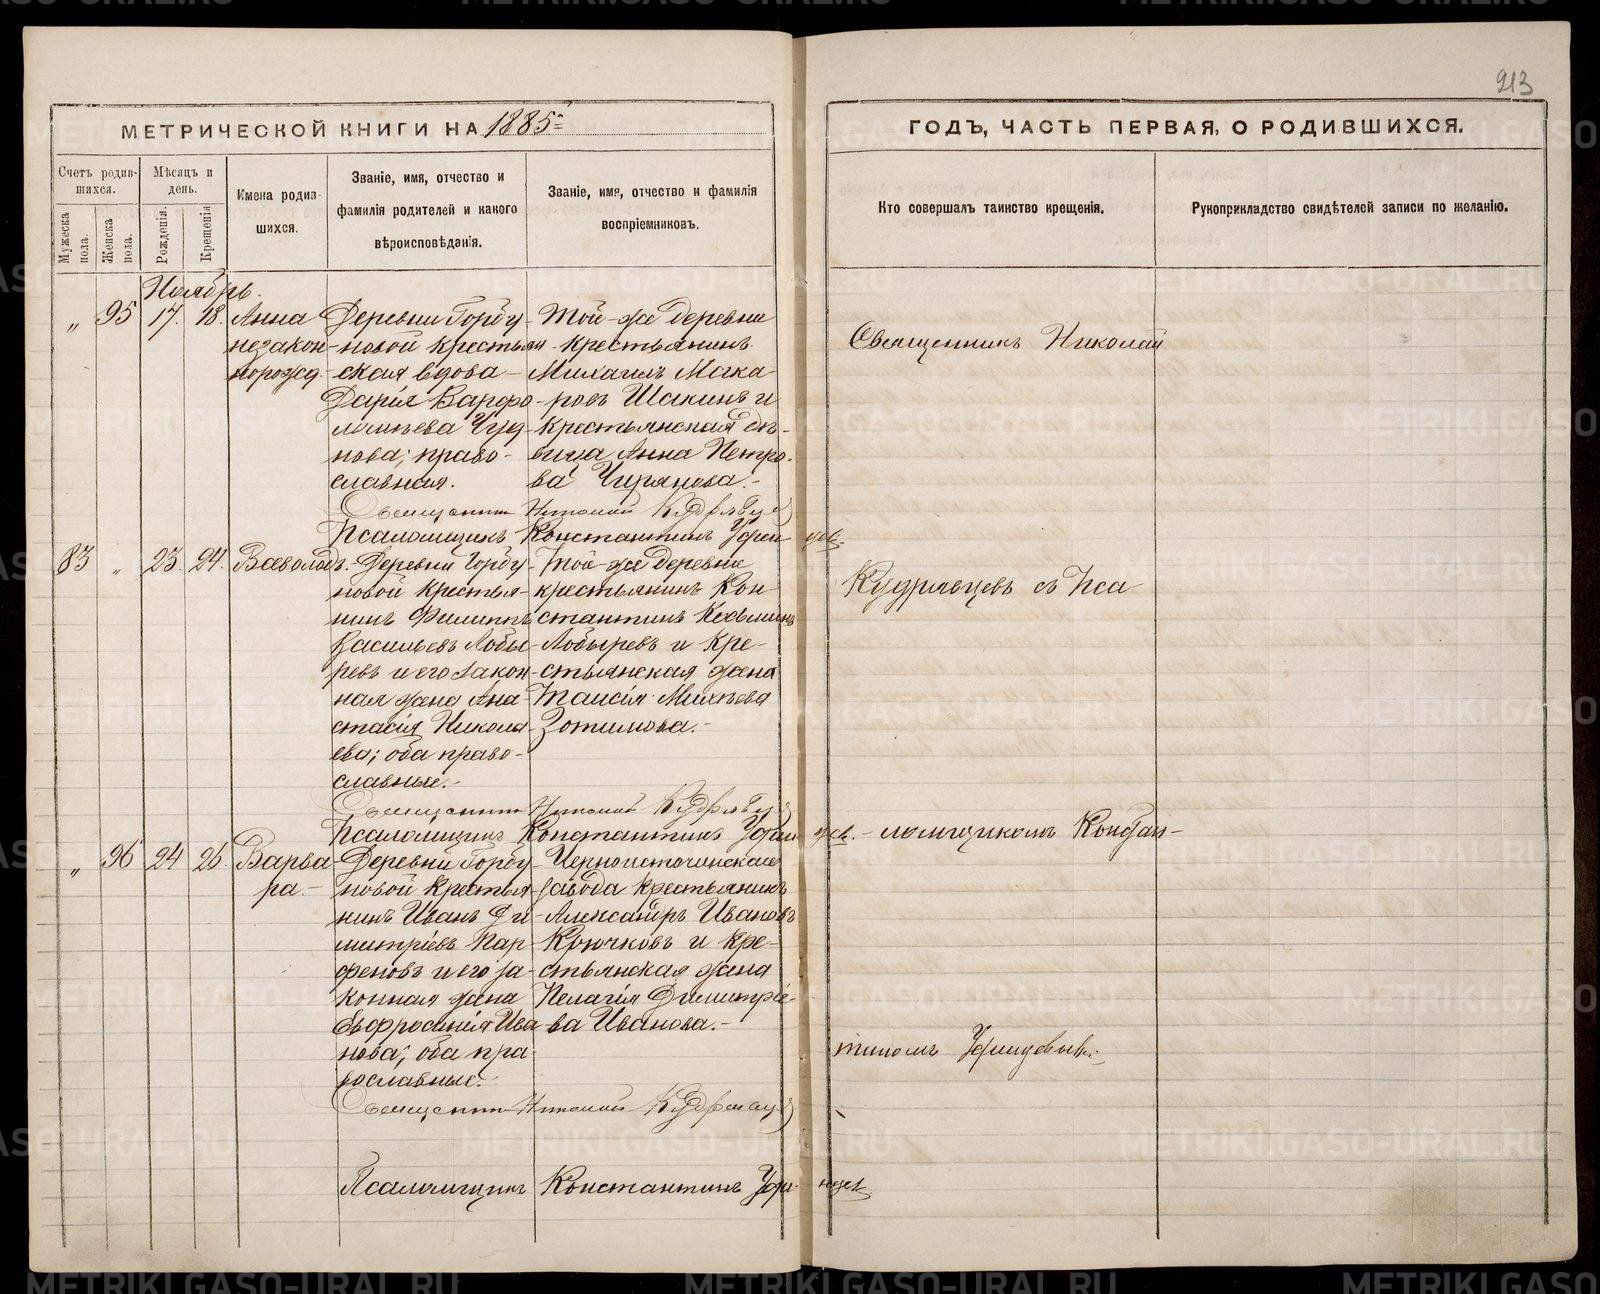 213
МЕТРИЧЕСКОЙ КНИГИ НА 1885
ГОДЪ, ЧАСТЬ ПЕРВАЯ, О РОДИВШИХСЯ.
Счетъ родив-
шихся.
Мужеска пола.
Женска пола.
Мѣсяцъ и
день.
Рожденія.
Крещенія
Имена родив-
шихся.
Званіе, имя, отчество и
фамилія родителей и какого
вѣроисповѣданія.
Званіе, имя, отчество и фамилія
воспріемниковъ.
Кто совершалъ таинство крещенія.
Рукоприкладство свидѣтелей записи по желанію.
Ноябрь.
" 95 17. 18.
Анна
незакон-
норожд.
Деревни Горбу-
новой крестьян-
ская вдова
Дарія Варфо-
ломѣева Чуд-
нова; право-
славная.
Той-же деревни
крестьянинъ
Михаилъ Мака-
ровъ Шакинъ и
крестьянская дѣ-
вица Анна Петро-
ва
Священникъ Николай Кудрявцев
Псаломщикъ Константинъ Уфинцев.
83 " 23. 24.
Всеволодъ.
Деревни Горбу-
новой крестья-
нинъ Филиппъ
Васильевъ Лобы-
ревъ и его закон-
ная жена Ана-
стасія Никола-
ева; оба право-
славные.-
Той-же деревни
крестьянинъ Кон-
стантинъ Козьминъ
Лобыревъ и кре-
стьянская жена
Таисія Михѣева
Зотимова.-
Священник Николай Кудрявцев
Псаломщикъ Константинъ Уфинцев.
" 96 24 26.
Варва-
ра.-
Деревни Горбу-
новой крестья-
нинъ Иванъ Ди-
митріевъ Пар-
феновъ и его за-
конная жена
Евфросинія Ива-
нова; оба пра-
вославные.-
Черноисточинскаго
завода крестьянинъ
Александръ Ивановъ
Крючковъ и кре-
стьянская жена
Пелагія Димитріе-
ва Иванова.-
Священник Николай Кудрявцев
Псаломщикъ Константинъ Уфинцев
Священникъ Николай
Кудрявцевъ съ Пса
ломщикомъ Констан-
тиномъ Уфинцевымъ.
METRIKI.GASO-URAL.RU